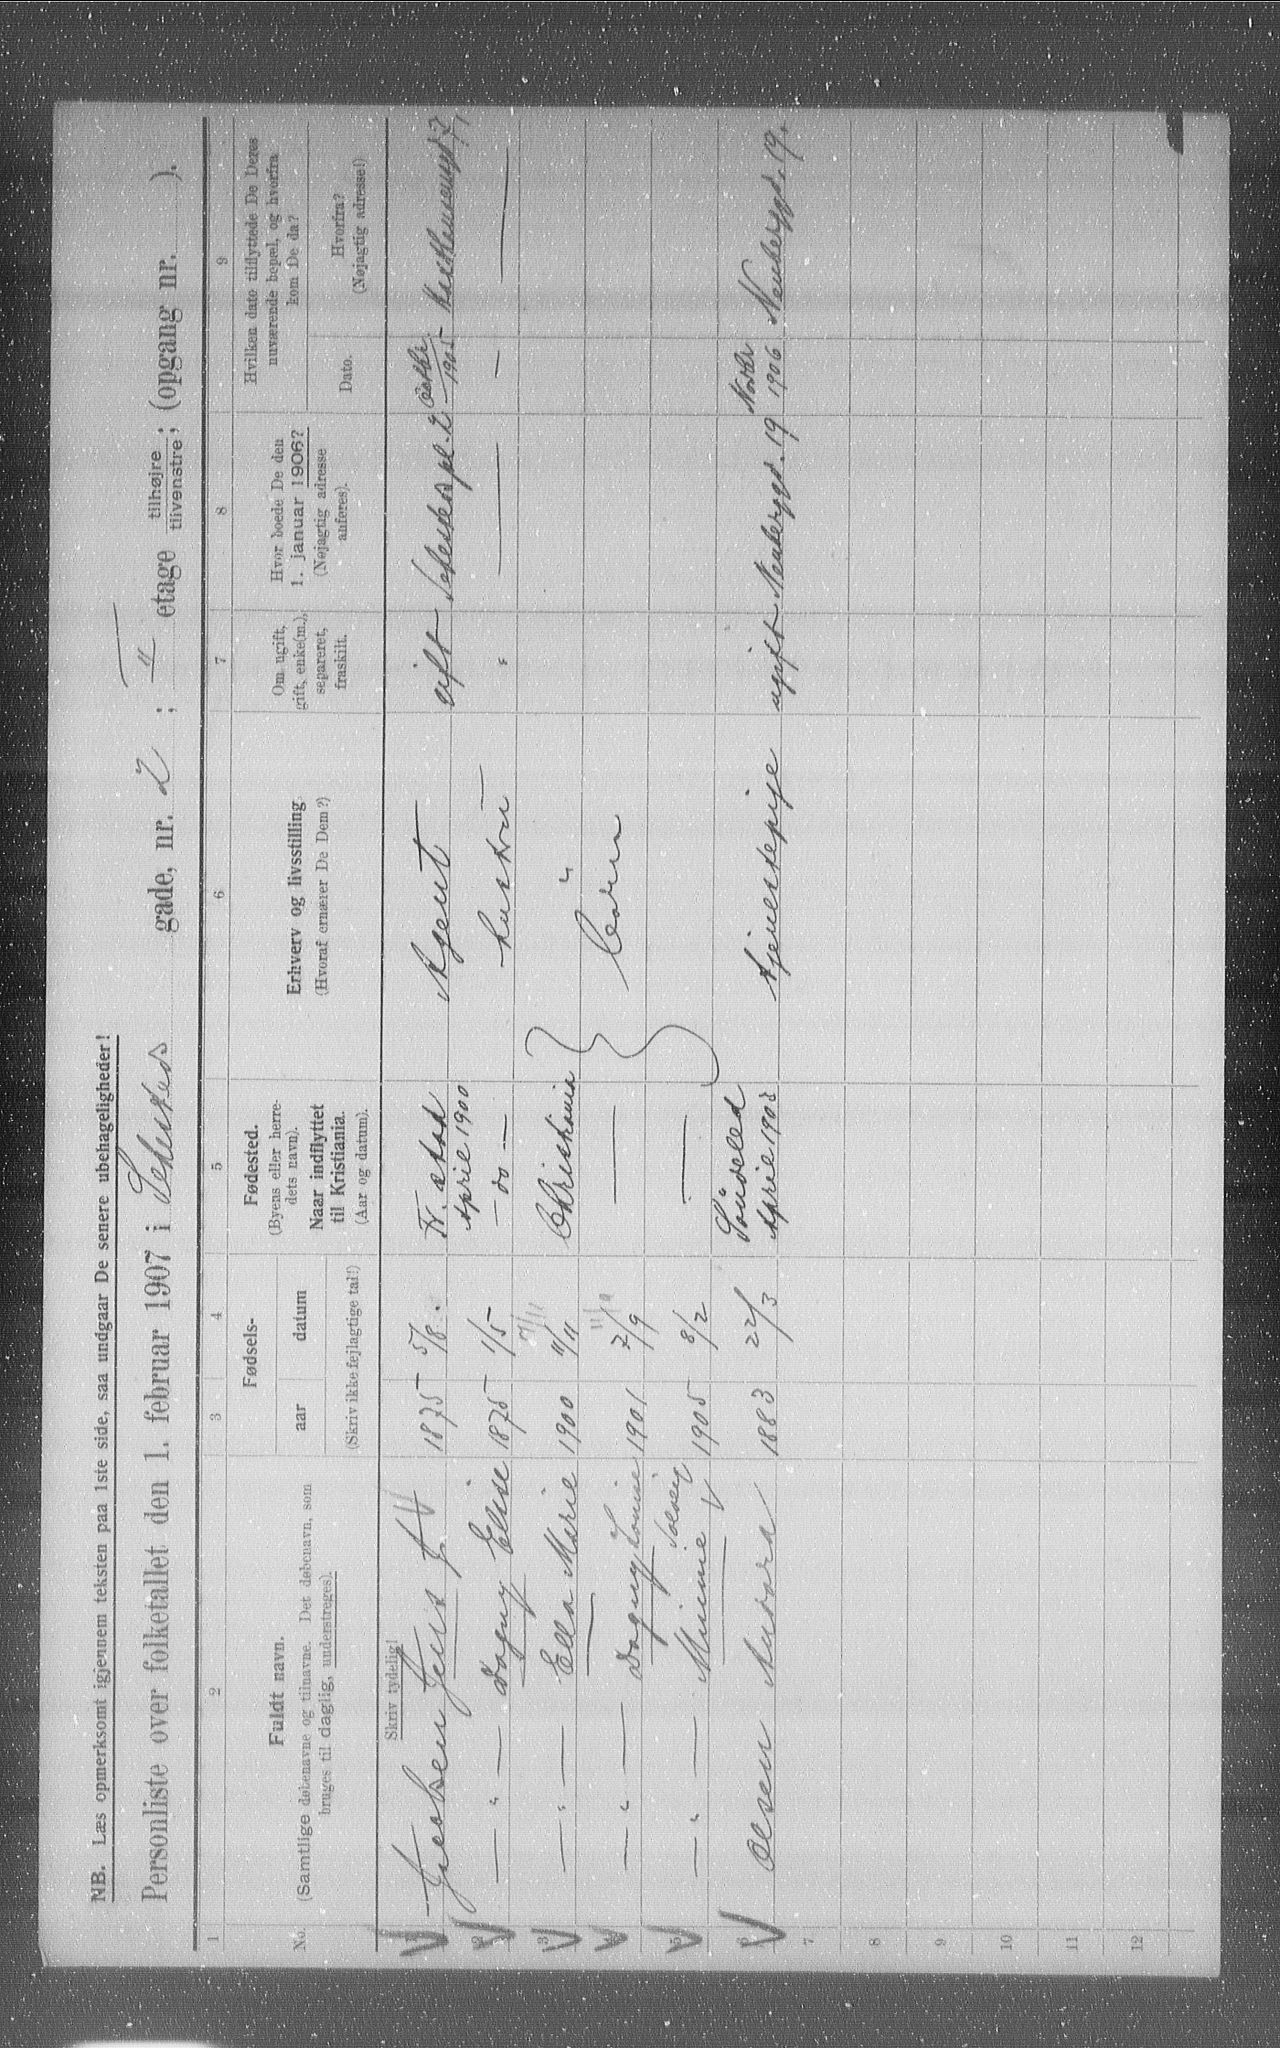 NB. Læs opmerksomt igjennem teksten paa 1ste side, saa undgaar De senere ubehageligheder!
Personliste over folketallet den 1. februar 1907 i Schuss gade, nr. 2 ; II etage tilhøjre tilvenstre ; (opgang nr. ).
1 2 3 4 5 6 7 8 9
No. Fuldt navn. (Samtlige døbenavne og tilnavne. Det døbenavn, som bruges til daglig, understreges).
Fødsels- aar datum
(Skriv ikke fejlagtige tal!)
Fødested. (Byens eller herredets navn). Naar indflyttet til Kristiania. (Aar og datum).
Erhverv og livsstilling (Hvoraf ernærer De Dem?)
Om ugift, gift, enke(m.), separeret, fraskilt.
Hvor boede De den 1. januar 1906? (Nøjagtig adresse anføres).
Hvilken dato tilflyttede De Deres nuværende bopæl, og hvorfra kom De da?
Dato. Hvorfra? (Nøjagtig adresse!)
Skriv tydelig!
1 Jacobsen Jens J 1875 5/8 Fr. stad April 1900 Agent gift Schuss pl. 2 Octbr 1905
2 — " — Dagny Elise 1875 1/5 — do — hustru " — — —
3 — " — Ella Marie 1900 11/11 Christiania "
4 — " — Dagny Louise 1901 7/9 — Børn
5 — " — Minnie Solveig 1905 8/2 —
6 Olsen Aurora 1883 22/3 April 1905 tjenestepige ugift Neubergd. 19 Novbr 1906 Neubergd. 19.
7
8
9
10
11
12